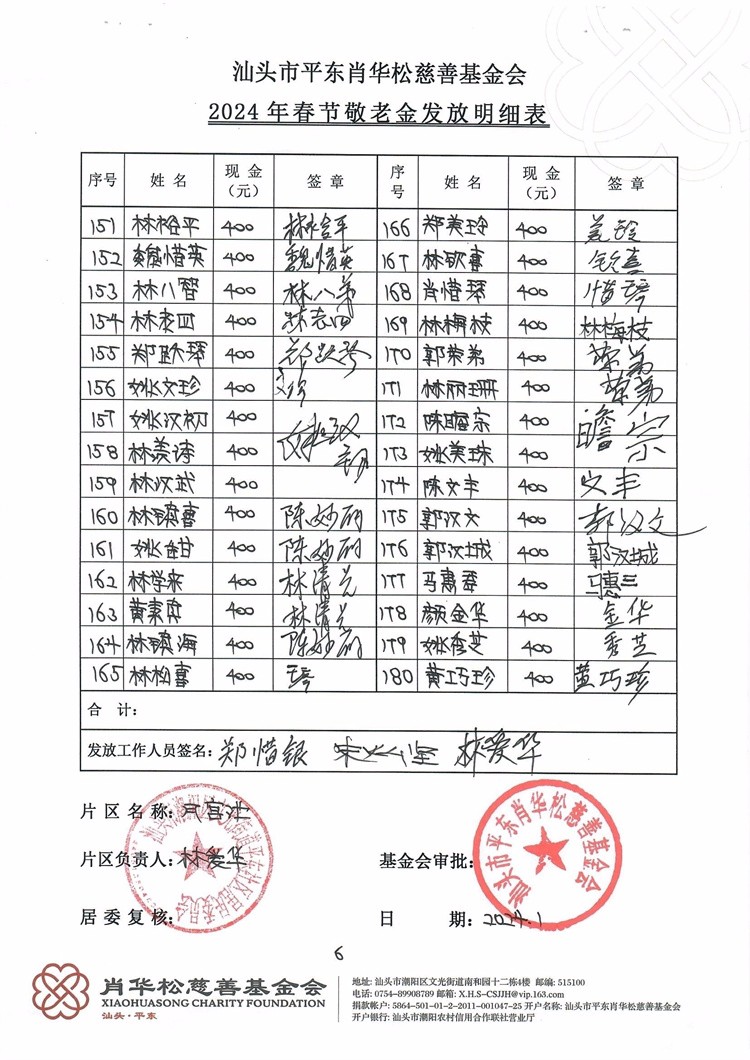 汕头市平东肖华松慈善基金会
2024年春节敬老金发放明细表
序号 姓名 现金（元） 签章 序号 姓名 现金（元） 签章
151 林裕平 400 林裕平 166 郑美玲 400 美玲
152 魏惜英 400 魏惜英 167 林钦喜 400 钦喜
153 林八智 400 林八弟 168 肖惜琴 400 惜琴
154 林老四 400 林老四 169 林梅枝 400 林梅枝
155 郑跃琴 400 郑跃琴 170 郭荣弟 400 荣弟
156 姚文珍 400 文珍 171 林丽珊 400 荣弟
157 姚汉初 400 172 陈瞻宗 400 瞻宗
158 林美诗 400 173 姚美珠 400
159 林汉武 400 174 陈文丰 400 文丰
160 林镇喜 400 陈妙丽 175 郭汉文 400 郭汉文
161 姚钿甘 400 陈妙丽 176 郭汉城 400 郭汉城
162 林学来 400 林清兰 177 马惠 400 马惠
163 黄 400 林清兰 178 颜金华 400 金华
164 林镇海 400 陈妙丽 179 姚香芝 400 秀芝
165 林松喜 400 琴 180 黄巧珍 400 黄巧珍
合 计：
发放工作人员签名：郑惜银 林爱华
片区名称：
片区负责人：林爱华 基金会审批：
居委复核： 日 期：2024.1
汕头市平东肖华松慈善基金会
6
肖华松慈善基金会
XIAOHUASONG CHARITY FOUNDATION
汕头·平东
地址: 汕头市潮阳区文光街道南和园十二栋4楼 邮编: 515100
电话: 0754-89908789 邮箱: X.H.S-CSJJH@vip.163.com
捐款帐户: 5864-501-01-2-2011-001047-25 开户名称: 汕头市平东肖华松慈善基金会
开户银行: 汕头市潮阳农村信用合作联社营业厅